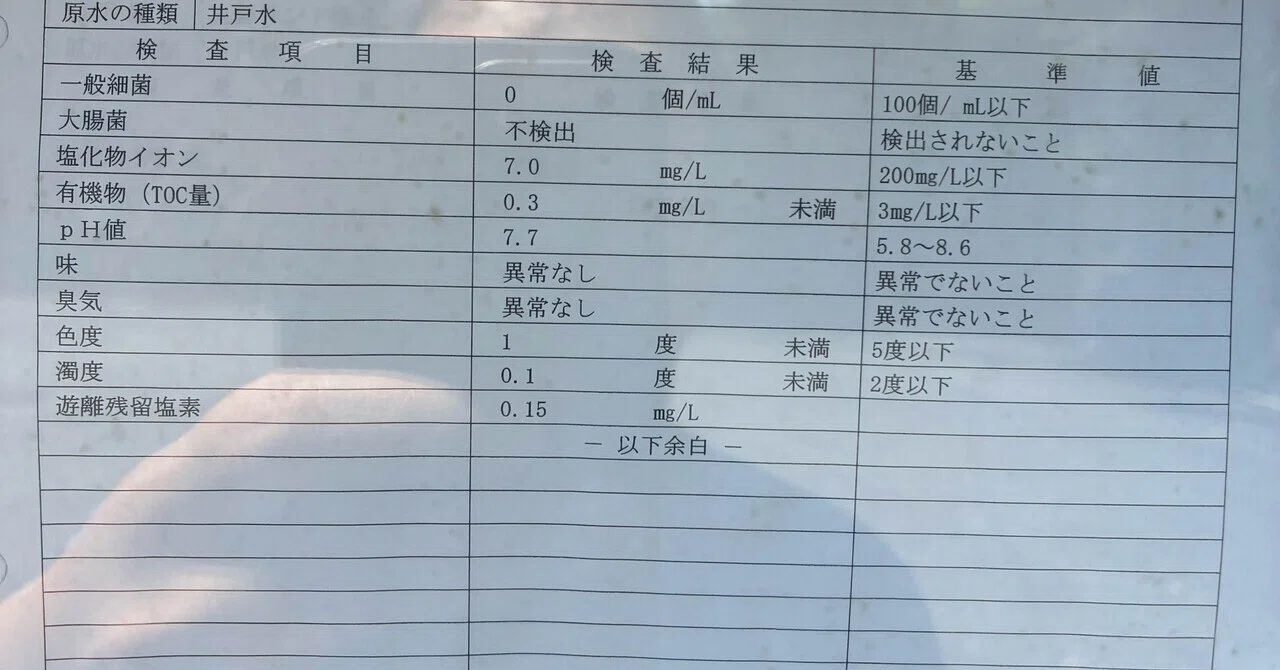 原水の種類 井戸水
検査項目 検査結果 基準値
一般細菌 0 個/mL 100個/ mL以下
大腸菌 不検出 検出されないこと
塩化物イオン 7.0 mg/L 200mg/L以下
有機物（TOC量） 0.3 mg/L 未満 3mg/L以下
pH値 7.7 5.8～8.6
味 異常なし 異常でないこと
臭気 異常なし 異常でないこと
色度 1 度 未満 5度以下
濁度 0.1 度 未満 2度以下
遊離残留塩素 0.15 mg/L
－ 以下余白 －